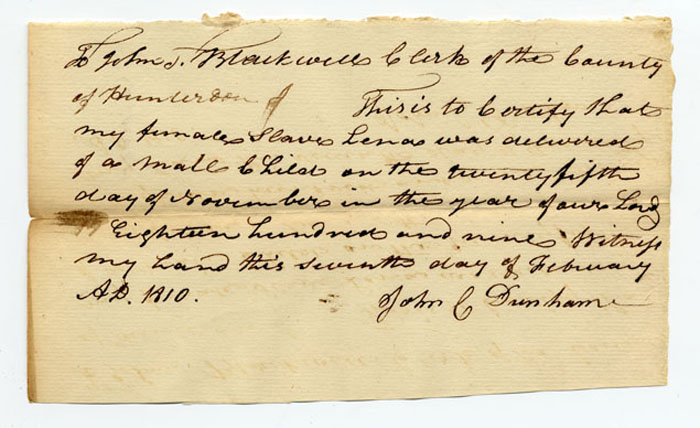 To John T. Blackwell Clerk of the County
of Hunterdon This is to Certify that
my female Slave Lena was delivered
of a mall Child on the twentyfifth
day of November in the year of our Lord
Eighteen hundred and nine Witness
my hand this seventh day of February
AD. 1810. John C Dunham